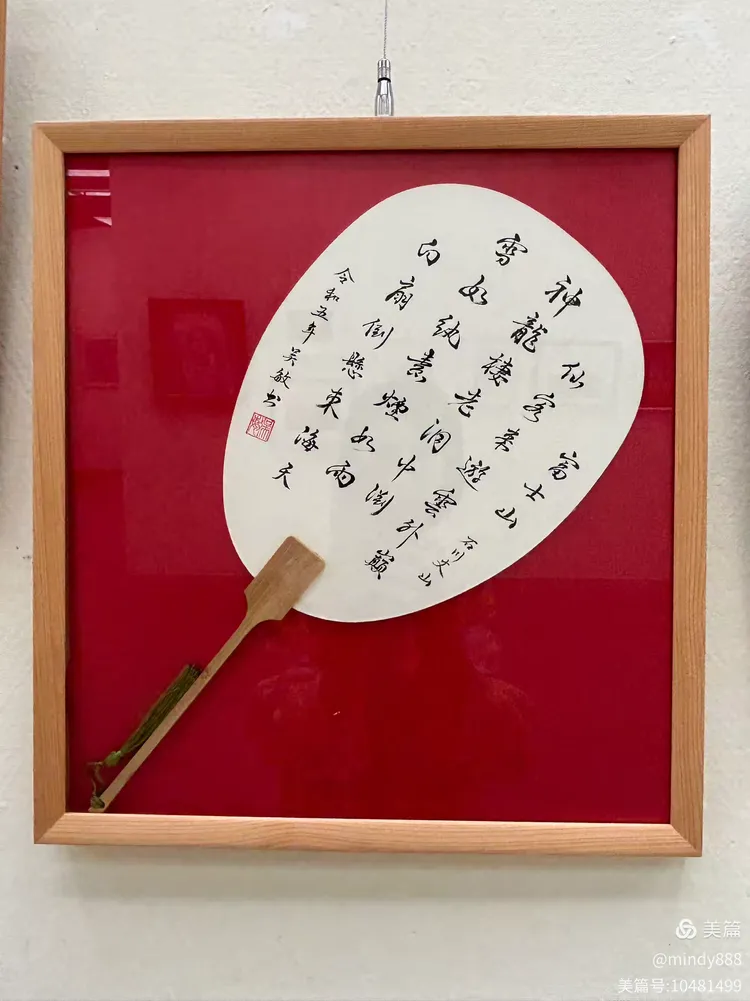 富士山 石川丈山
仙客来遊雲外巔
神龍棲老洞中淵
雪如紈素煙如
白扇倒懸東海天
令和五年 吴敏书
美篇
@mindy888
美篇号:10481499